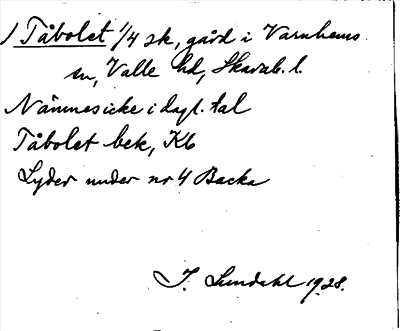 1 Tåbolet 1/4 sk, gård i Varnhems
sn, Valle hd, Skarab. l.
Nämnes icke i dagl. tal
Tåbolet bek, Kb
Lyder under nr 4 Backa
I. Lundahl 1928.